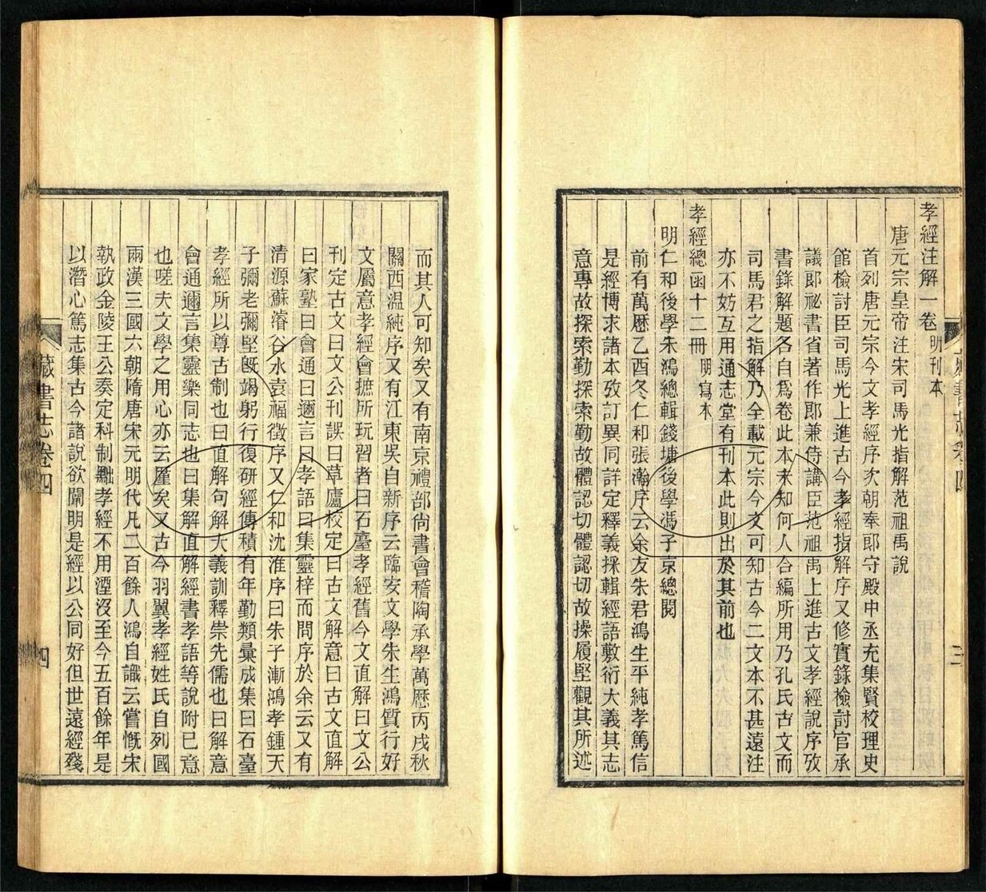 孝經注解一卷 明刊本
唐元宗皇帝注宋司馬光指解范祖禹說
首列唐元宗今文孝經序次朝奉郎守殿中丞充集賢校理史
館檢討臣司馬光上進古今孝經指解序又修實錄檢討官承
議郎祕書省著作郎兼侍講臣范祖禹上進古文孝經說序攷
書錄解題各自爲卷此本未知何人合編所用乃孔氏古文而
司馬君之指解乃全載元宗今文可知古今二文本不甚遠注
亦不妨互用通志堂有刊本此則出於其前也
孝經總函十二冊 明寫本
明仁和後學朱鴻總輯錢塘後學馮子京總閱
前有萬曆乙酉冬仁和張瀚序云余友朱君鴻生平純孝篤信
是經博求諸本攷訂異同詳定釋義採輯經語敷衍大義其志
意專故探索勤探索勤故體認切體認切故操履堅觀其所述
三
而其人可知矣又有南京禮部尙書會稽陶承學萬曆丙戌秋
關西温純序又有江東吳自新序云臨安文學朱生鴻質行好
文屬意孝經會摭所玩習者曰石臺孝經舊今文直解曰文公
刊定古文曰文公刊誤曰草廬校定曰古文解意曰古文直解
曰家塾曰會通曰邇言曰孝語曰集靈梓而問序於余云又有
清源蘇濬谷水袁福徵序又仁和沈淮序曰朱子漸鴻孝鍾天
子彌老彌堅既竭躬行復研經傳積有年勤類彙成集曰石臺
孝經所以尊古制也曰直解句解大義訓釋崇先儒也曰解意
會通邇言集靈樂同志也曰集解直解經書孝語等說附已意
也嗟夫文學之用心亦云厪矣又古今羽翼孝經姓氏自列國
兩漢三國六朝隋唐宋元明代凡二百餘人鴻自識云嘗慨宋
執政金陵王公奏定科制黜孝經不用湮沒至今五百餘年是
以潛心篤志集古今諸說欲闡明是經以公同好但世遠經殘
藏書志卷四
四